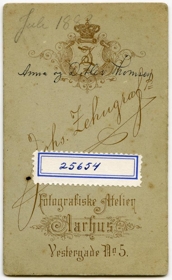 Juli 18
Anna og Esther Thomsen
Johs. Zehngraf
25654
Fotografiske Atelier
Aarhus
Vestergade No 5.